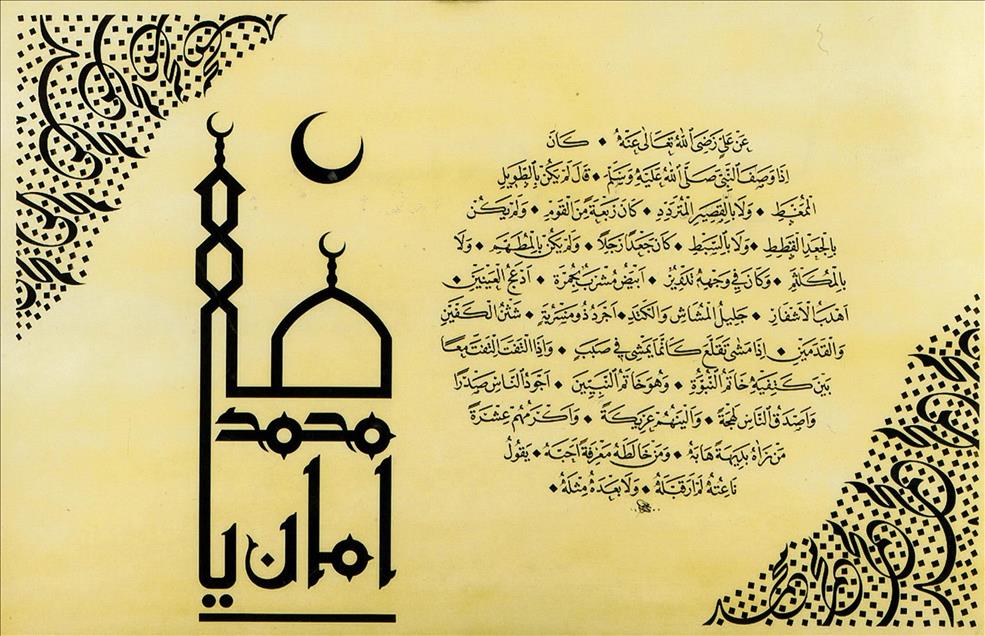 عَنْ عَلِيٍّ رَضِيَ اللهُ تَعَالَى عَنْهُ • كَانَ
اِذَا وَصَفَ النَّبِيَّ صَلَّى اللهُ عَلَيْهِ وَسَلَّمَ • قَالَ لَمْ يَكُنْ بِالطَّوِيلِ
الْمُمَّغِطِ • وَلَا بِالْقَصِيرِ الْمُتَرَدِّدِ • كَانَ رَبْعَةً مِنَ الْقَوْمِ • وَلَمْ يَكُنْ
بِالْجَعْدِ الْقَطَطِ • وَلَا بِالسَّبْطِ • كَانَ جَعْدًا رَجِلًا • وَلَمْ يَكُنْ بِالْمُطَهَّمِ • وَلَا
بِالْمُكَلْثَمِ • وَكَانَ فِي وَجْهِهِ تَدْوِيرٌ • اَبْيَضُ مُشْرَبٌ بِحُمْرَةٍ • اَدْعَجُ الْعَيْنَيْنِ
اَهْدَبُ الْاَشْفَارِ • جَلِيلُ الْمُشَاشِ وَالْكَتَدِ • اَجْرَدُ ذُو مَسْرُبَةٍ • شَثْنُ الْكَفَّيْنِ
وَالْقَدَمَيْنِ • اِذَا مَشَى تَقَلَّعَ كَاَنَّمَا يَمْشِي فِي صَبَبٍ • وَاِذَا الْتَفَتَ الْتَفَتَ مَعًا
بَيْنَ كَتِفَيْهِ خَاتَمُ النُّبُوَّةِ • وَهُوَ خَاتَمُ النَّبِيِّينَ • اَجْوَدُ النَّاسِ صَدْرًا
وَاَصْدَقُ النَّاسِ لَهْجَةً • وَاَلْيَنُهُمْ عَرِيكَةً • وَاَكْرَمُهُمْ عِشْرَةً
مَنْ رَاٰهُ بَدِيهَةً هَابَهُ • وَمَنْ خَالَطَهُ مَعْرِفَةً اَحَبَّهُ • يَقُولُ
نَاعِتُهُ لَمْ اَرَ قَبْلَهُ • وَلَا بَعْدَهُ مِثْلَهُ •
محمد
امان يا